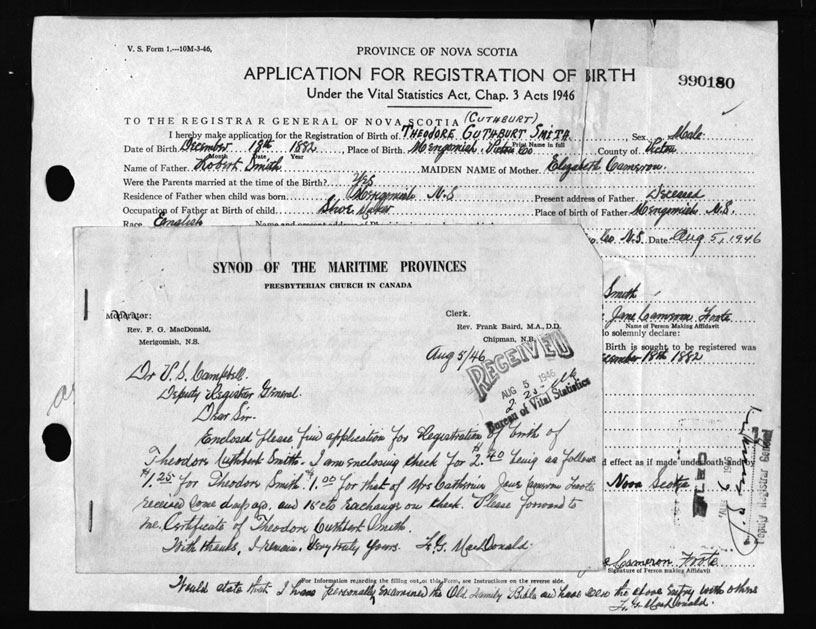 V. S. Form 1.—10M-3-46.
PROVINCE OF NOVA SCOTIA
APPLICATION FOR REGISTRATION OF BIRTH
990180
Under the Vital Statistics Act, Chap. 3 Acts 1946
TO THE REGISTRAR GENERAL OF NOVA SCOTIA (CUTHBURT)
I hereby make application for the Registration of Birth of THEODORE CUTHBURT SMITH Sex Male
Print Name in full
Date of Birth December 18th 1882 Place of Birth Merigomish, Pictou Co County of Pictou
Month Date Year
Name of Father Robert Smith MAIDEN NAME of Mother Elizabeth Cameron
Were the Parents married at the time of the Birth? Yes
Residence of Father when child was born Merigomish N.S Present address of Father Deceased
Occupation of Father at Birth of child Shoe Maker Place of birth of Father Merigomish N.S.
Race English
Co. N.S. Date Aug 5, 1946
SYNOD OF THE MARITIME PROVINCES
PRESBYTERIAN CHURCH IN CANADA
Moderator:
Rev. F. G. MacDonald,
Merigomish, N.S.
Clerk.
Rev. Frank Baird, M.A., D.D.
Chipman, N.B.
Aug 5/46
RECEIVED
AUG 5 1946
Bureau of Vital Statistics
Dr V. S. Campbell.
Deputy Registrar General.
Dear Sir.
Enclosed please find application for Registration of birth of
Theodore Cuthbert Smith. I am enclosing check for 2.40 being as follows
$1.25 for Theodore Smith. 1.00 for that of Mrs Catherine Jane Cameron Foote
received some days ago. and 15cts Exchange on check. Please forward to
me. Certificate of Theodore Cuthbert Smith.
With thanks, I remain, Very truly yours. F. G. MacDonald.
Smith
Jane Cameron Foote
Name of Person Making Affidavit
do solemnly declare:
Birth is sought to be registered was
December 18th 1882
d effect as if made under oath and
Nova Scotia
FILED
AUG 6 1946
Deputy Registrar General
Cameron Foote
Signature of Person making Affidavit
For Information regarding the filling out of this Form, see Instructions on the reverse side.
Would state that I have personally examined the Old Family Bible and have seen the above Entry with others
F. G. MacDonald.